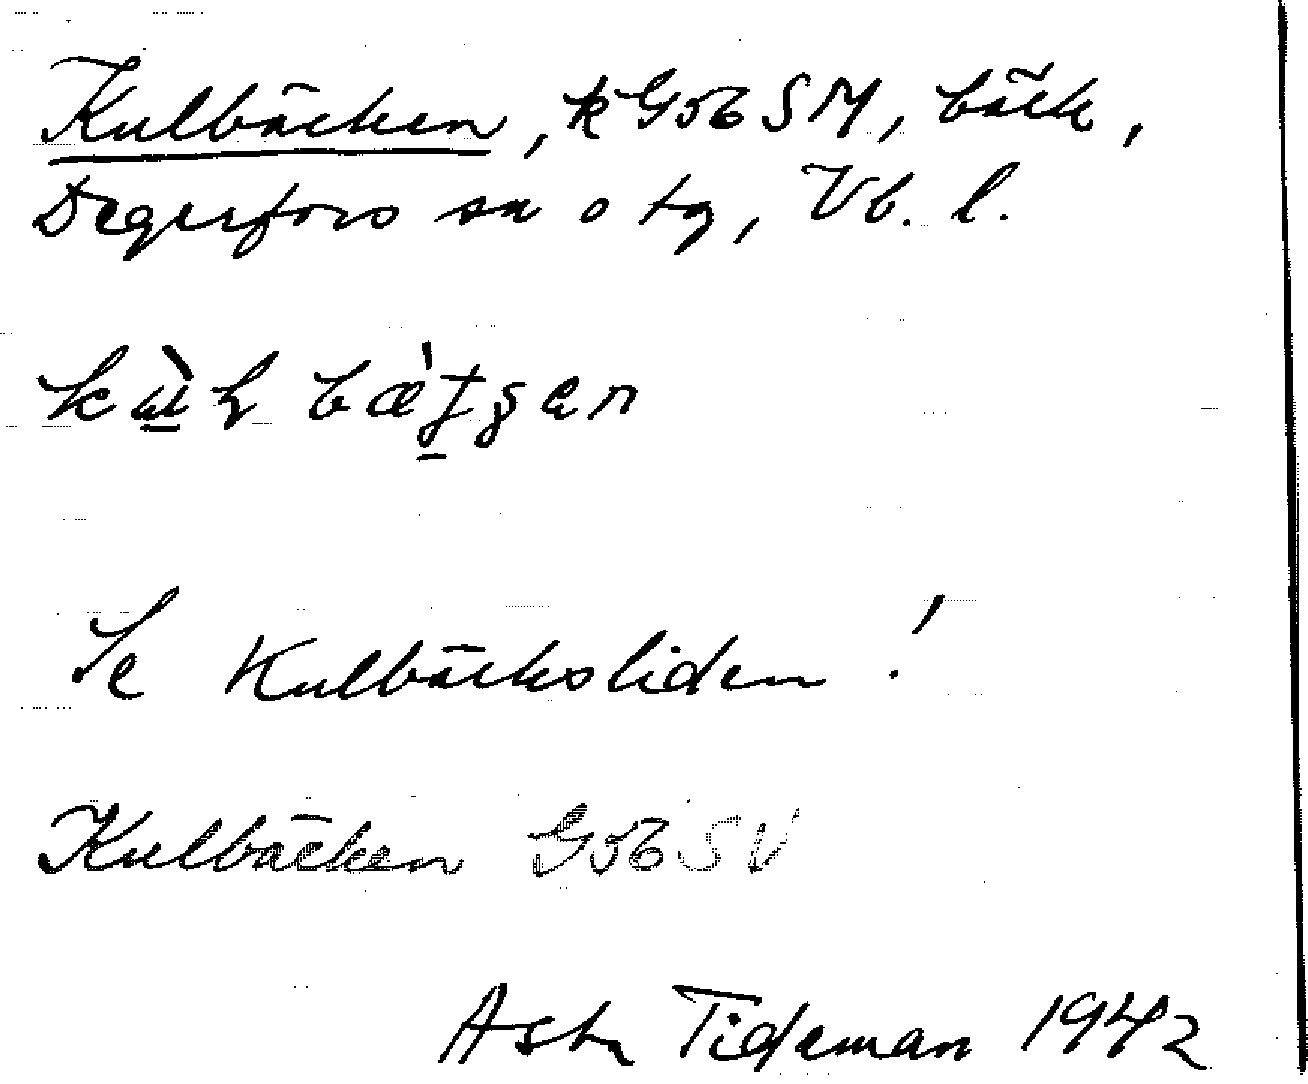 Kulbäcken, k G56 SM, bäck,
Degerfors sn o tg, Vb. l.
Se Kulbäcksliden!
Kulbäcken G56 SV
Asta Tideman 1942